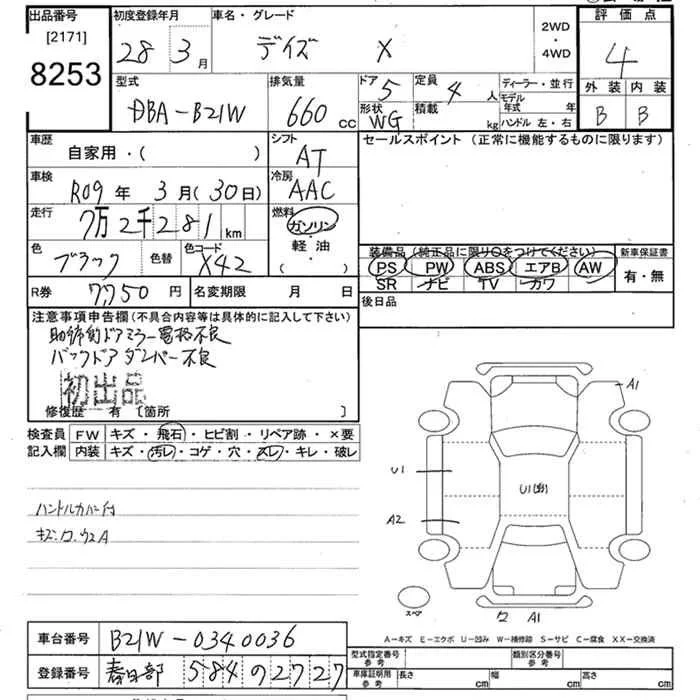 出品番号 初度登録年月 車名・グレード 評価点
[2171]
8253
28 3月 デイズ X 2WD・4WD 4
外装 内装
B B
型式 排気量 ドア 5 定員 4人 ディーラー・並行
DBA-B21W 660cc 形状 WG 積載 kg モデル年式 年
ハンドル 左・右
車歴 シフト セールスポイント (正常に機能するものに限ります)
自家用・( ) AT
車検 冷房
R09年 3月(30日) AAC
走行 燃料
7万2千281km ガソリン・軽油・( )
色 色替 色コード
ブラック X42
装備品 (純正品に限り○をつけてください) 新車保証書
PS PW ABS エアB AW 有・無
SR ナビ TV カワ
R券 7,750円 名変期限 月 日 後日品
注意事項申告欄(不具合内容等は具体的に記入して下さい)
助手席ドアミラー電格不良
バックドアダンパー不良
初出品
修復歴 有 〔箇所 〕
検査員 FW キズ・飛石・ヒビ割・リペア跡・×要
記入欄 内装 キズ・汚レ・コゲ・穴・スレ・キレ・破レ
A1
U1
U1
A2
ハンドルカバー付
スペア
A1
A-キズ E-エクボ U-凹み W-補修跡 S-サビ C-腐食 XX-交換済
車台番号 B21W-0340036
型式指定番号 参考 類別区分番号 参考
登録番号 春日部 584 の 2727
車庫証明用 参考 長さ cm 幅 cm 高さ cm